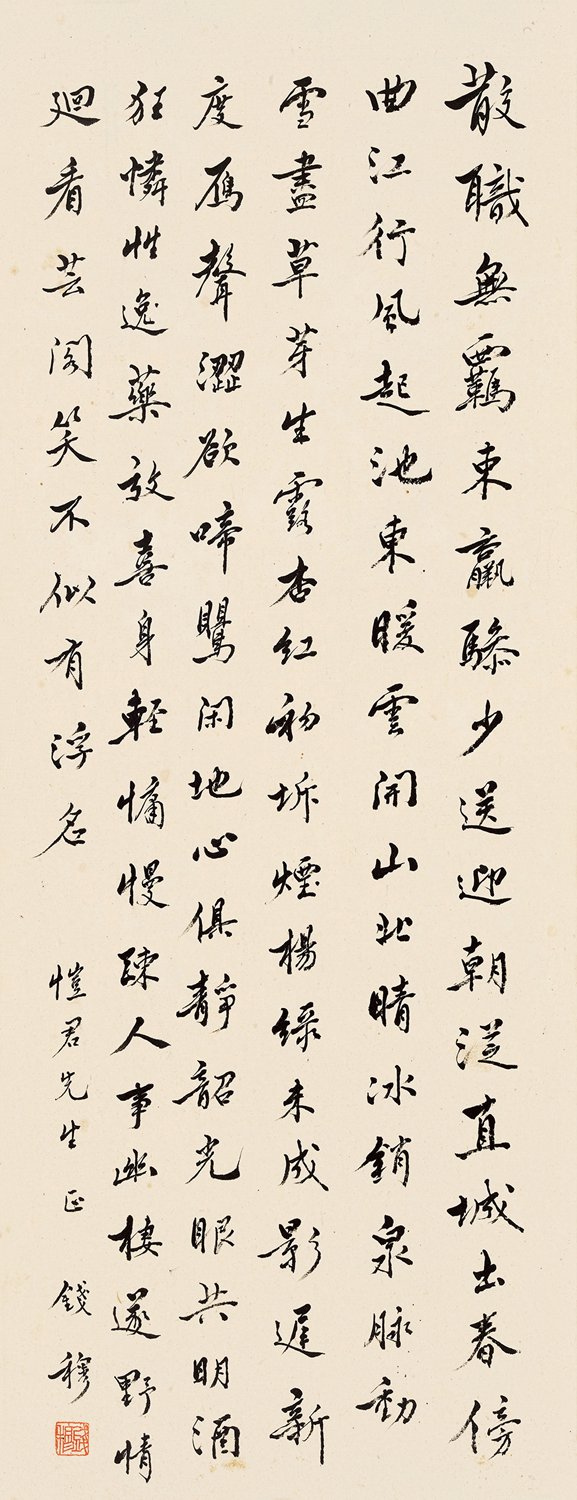 散職無羈束羸驂少送迎朝從直城出春傍
曲江行風起池東暖雲開山北晴冰銷泉脉動
雪盡草芽生露杏紅初坼煙楊綠未成影遲新
度鴈聲澀欲啼鸎閑地心俱靜韶光眼共明酒
狂憐性逸藥效喜身輕慵慢踈人事幽棲遂野情
廻看芸阁笑不似有浮名
愷君先生正 錢穆
錢穆